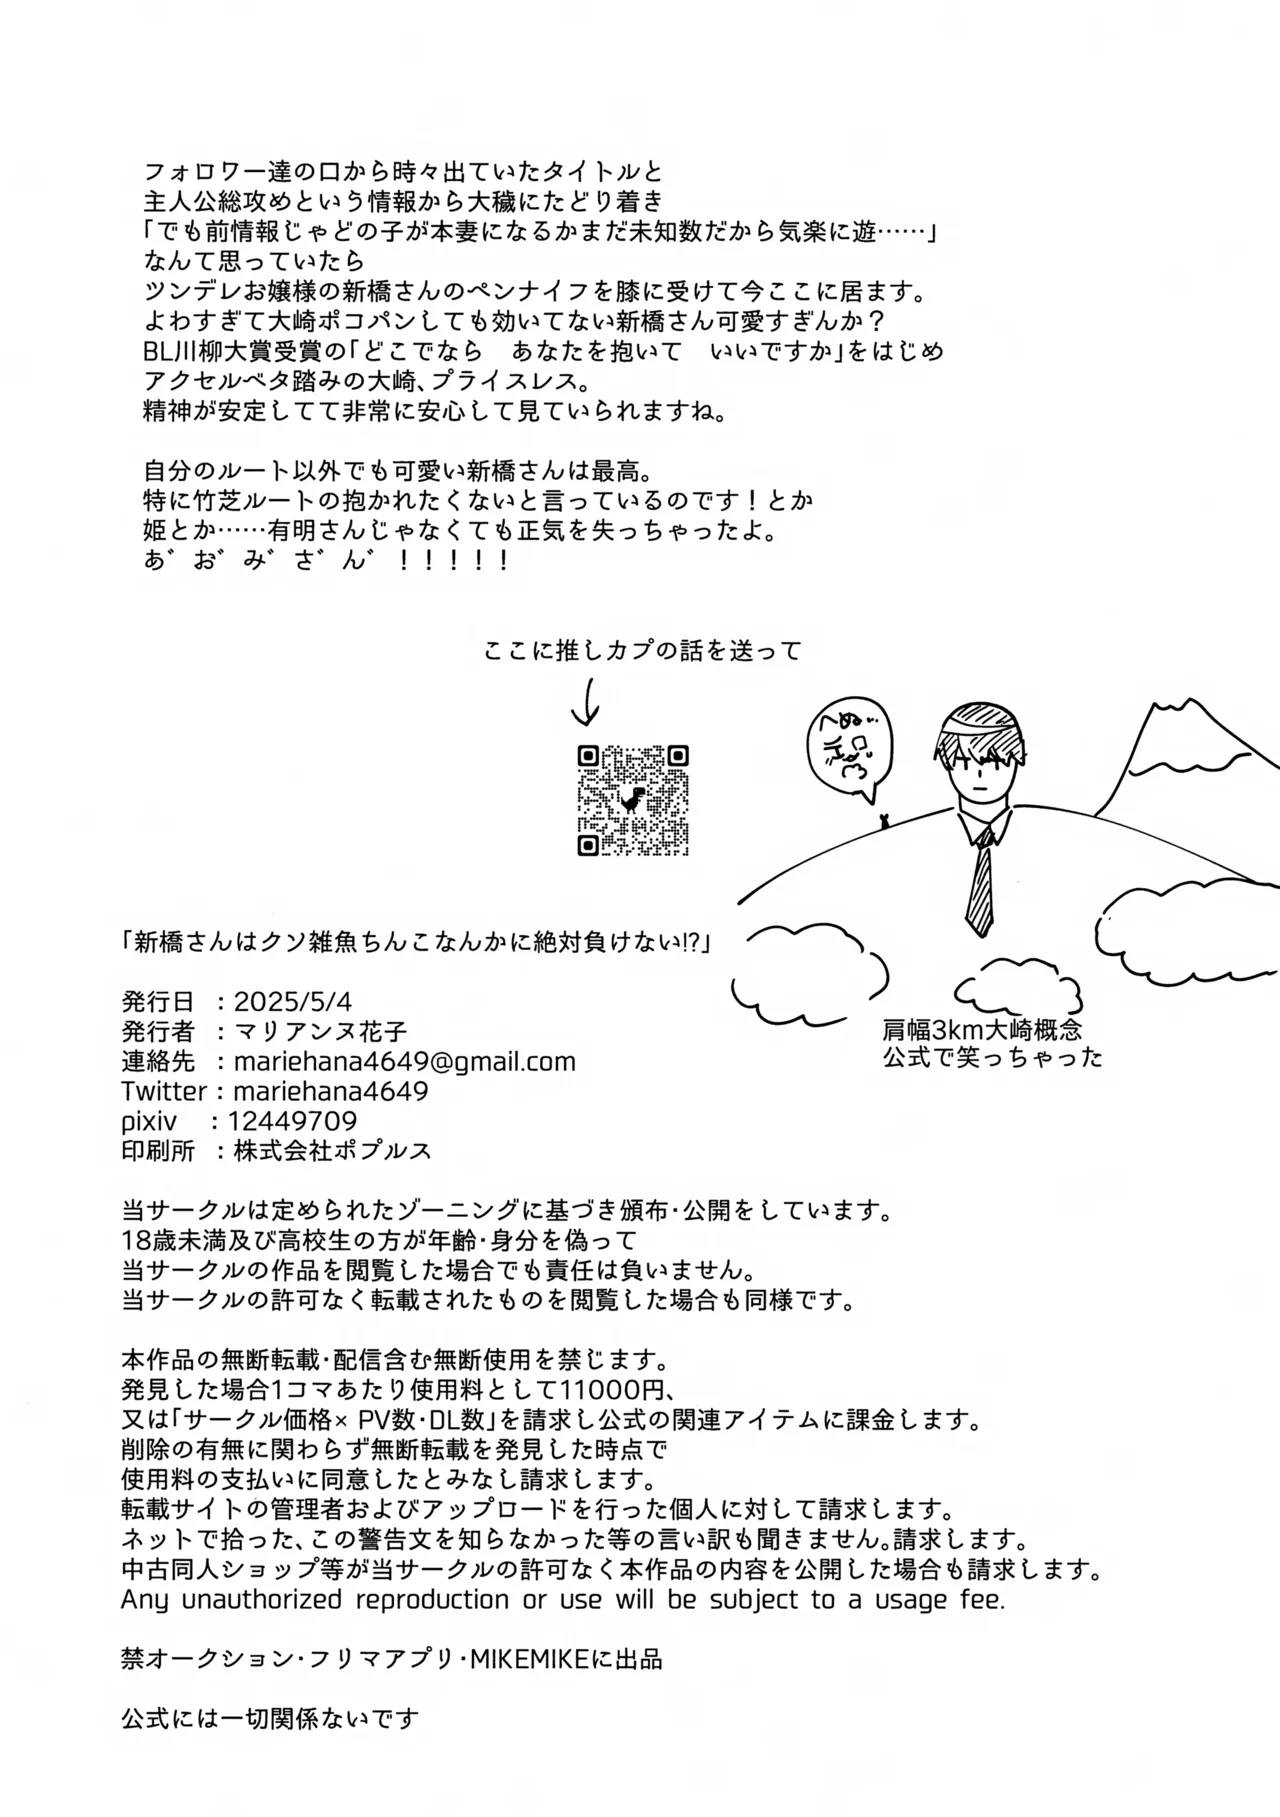 フォロワー達の口から時々出ていたタイトルと
主人公総攻めという情報から大穢にたどり着き
「でも前情報じゃどの子が本妻になるかまだ未知数だから気楽に遊……」
なんて思っていたら
ツンデレお嬢様の新橋さんのペンナイフを膝に受けて今ここに居ます。
よわすぎて大崎ポコパンしても効いてない新橋さん可愛すぎんか？
BL川柳大賞受賞の「どこでなら　あなたを抱いて　いいですか」をはじめ
アクセルベタ踏みの大崎、プライスレス。
精神が安定してて非常に安心して見ていられますね。
自分のルート以外でも可愛い新橋さんは最高。
特に竹芝ルートの抱かれたくないと言っているのです！とか
姫とか……有明さんじゃなくても正気を失っちゃったよ。
あ゛お゛み゛さ゛ん゛！！！！！
ここに推しカプの話を送って
へぬ…
「新橋さんはクソ雑魚ちんこなんかに絶対負けない!?」
発行日　：2025/5/4
発行者　：マリアンヌ花子
連絡先　：mariehana4649@gmail.com
Twitter：mariehana4649
pixiv　：12449709
印刷所　：株式会社ポプルス
肩幅3km大崎概念
公式で笑っちゃった
当サークルは定められたゾーニングに基づき頒布・公開をしています。
18歳未満及び高校生の方が年齢・身分を偽って
当サークルの作品を閲覧した場合でも責任は負いません。
当サークルの許可なく転載されたものを閲覧した場合も同様です。
本作品の無断転載・配信含む無断使用を禁じます。
発見した場合1コマあたり使用料として11000円、
又は「サークル価格× PV数・DL数」を請求し公式の関連アイテムに課金します。
削除の有無に関わらず無断転載を発見した時点で
使用料の支払いに同意したとみなし請求します。
転載サイトの管理者およびアップロードを行った個人に対して請求します。
ネットで拾った、この警告文を知らなかった等の言い訳も聞きません。請求します。
中古同人ショップ等が当サークルの許可なく本作品の内容を公開した場合も請求します。
Any unauthorized reproduction or use will be subject to a usage fee.
禁オークション・フリマアプリ・MIKEMIKEに出品
公式には一切関係ないです